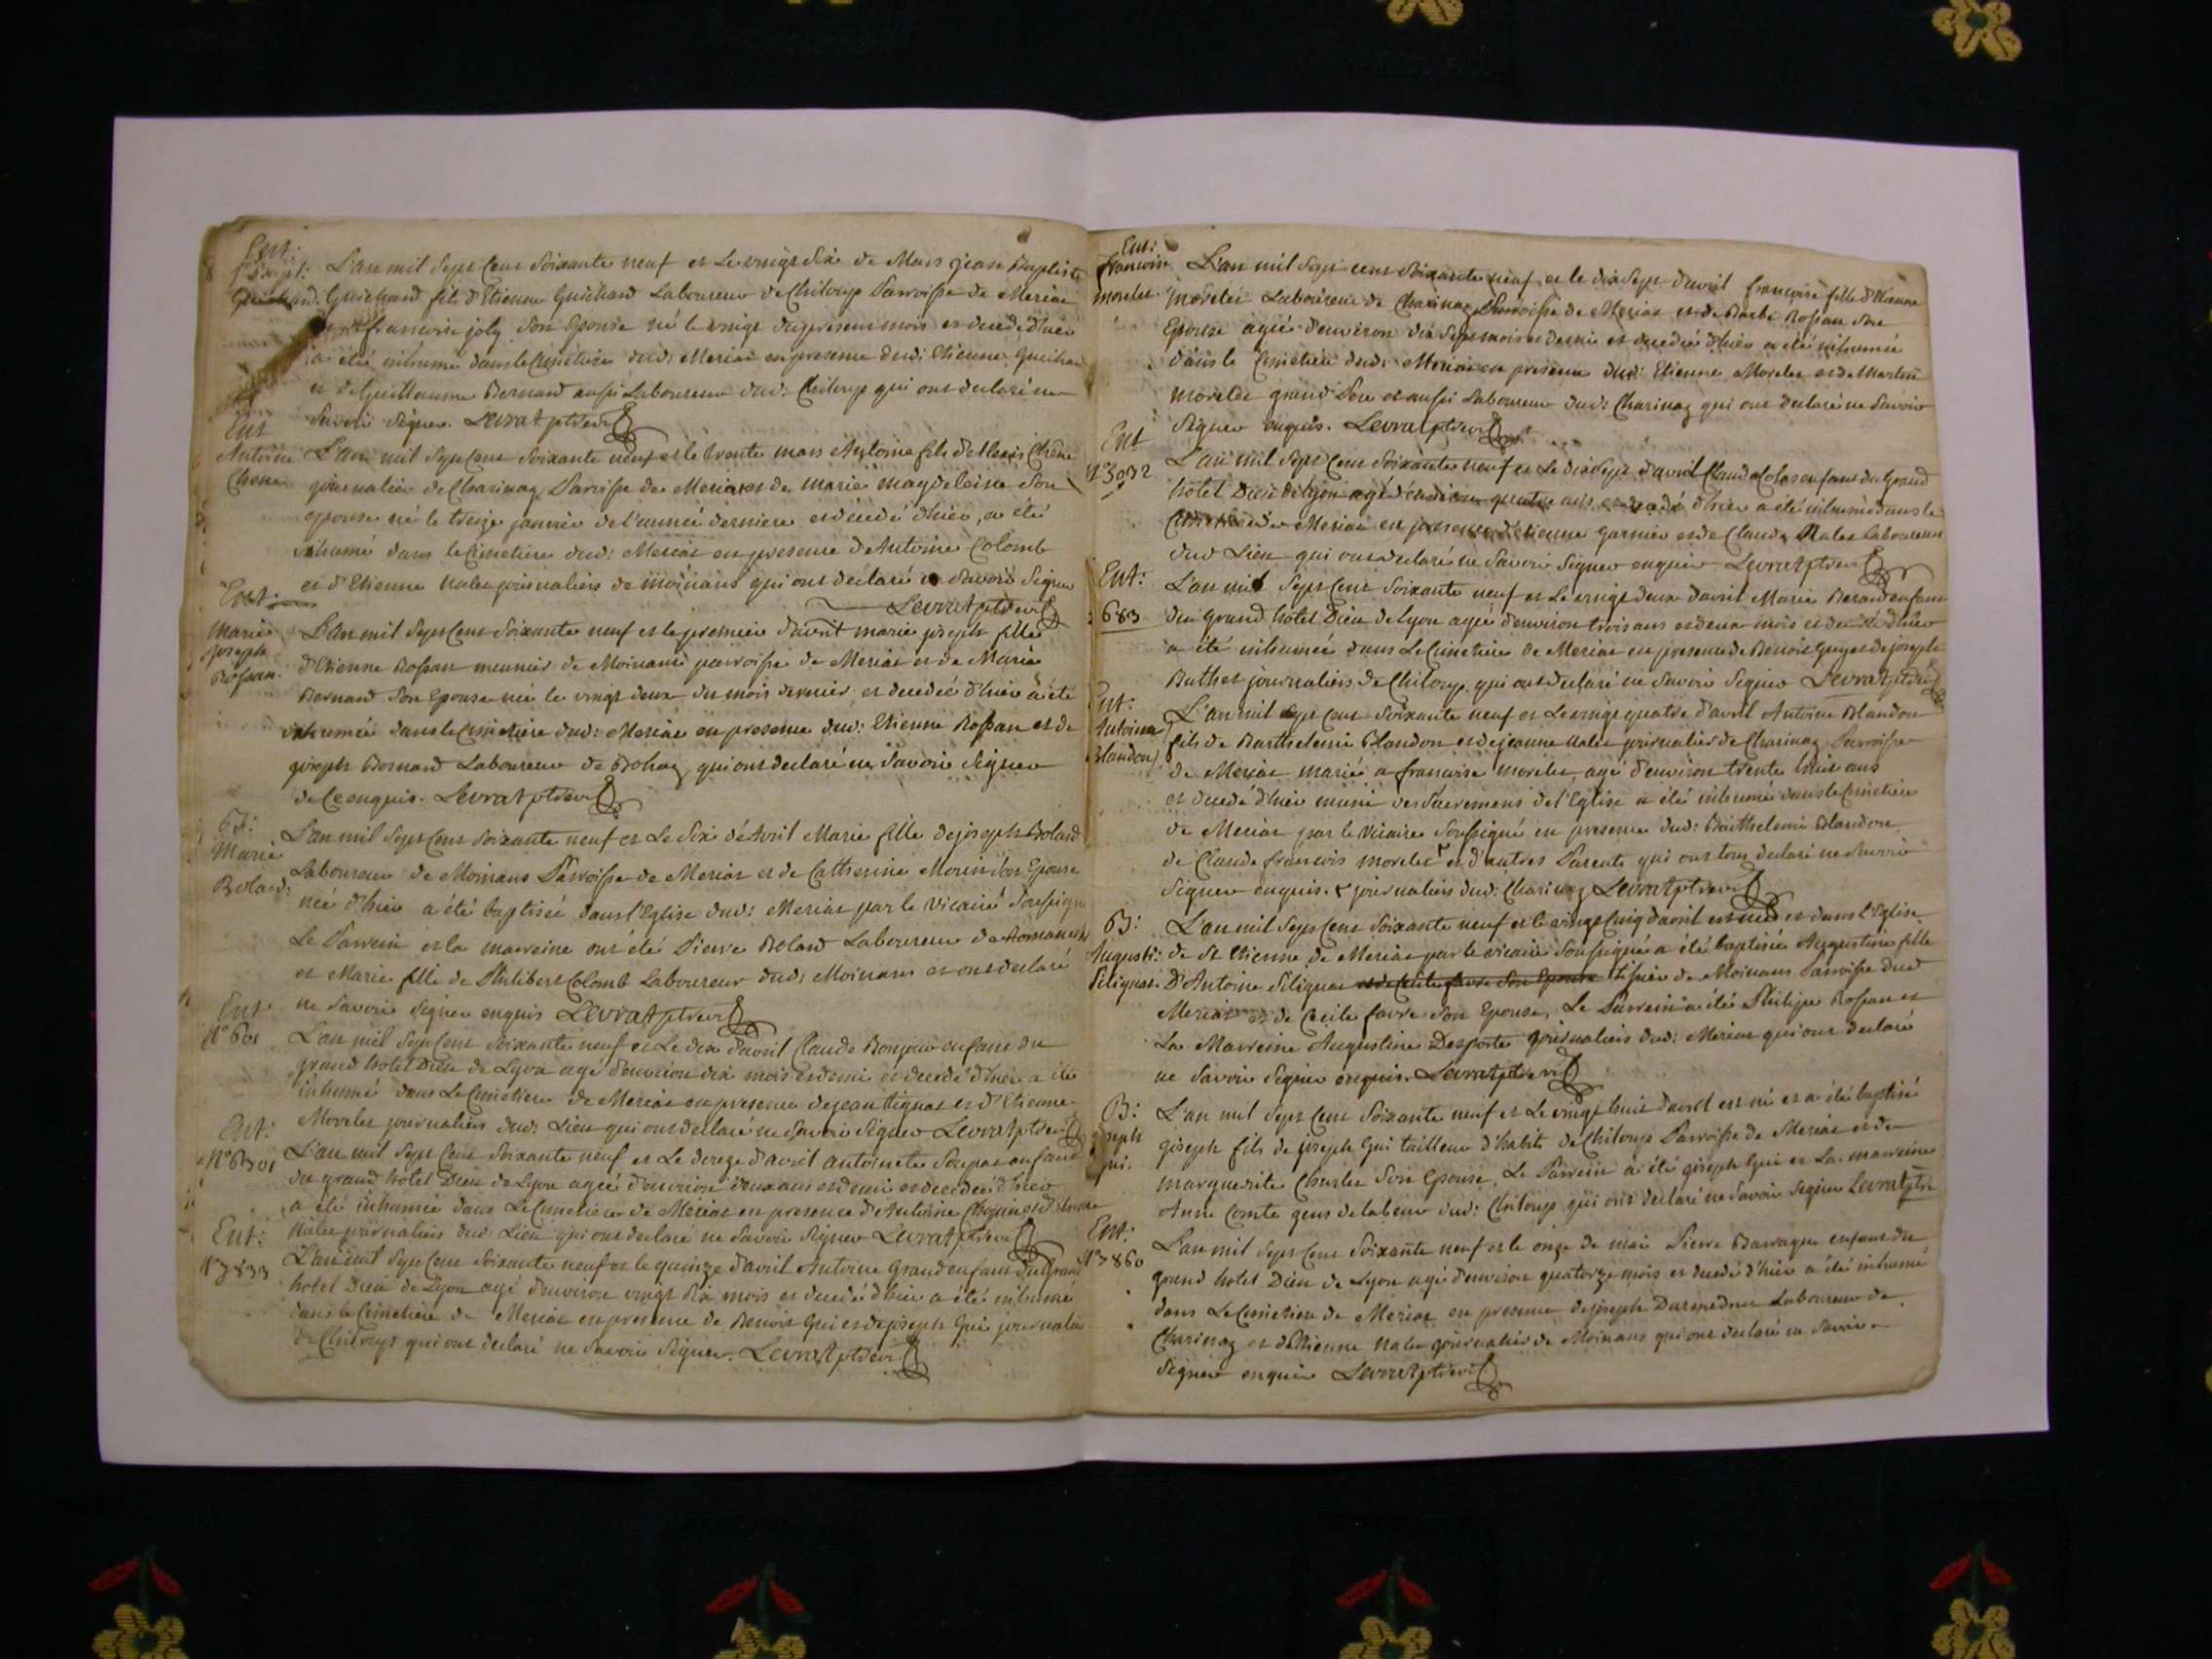 Ent:
J Bapt:
Guichard.
L'an mil Sept Cent Soixante neuf et Le vingt Six de Mars jean Baptiste
Guichard fils d'Etienne Guichard Laboureur de Chiloup Parroisse de Meriat
francoise joly Son Epouse né le vingt du present mois et decedé d'hier
a été inhumé dans le Cimetiere dud: Meriat en presence dud: Etienne Guichard
et de Guillaume Bernard aussi Laboureur dud: Chiloup qui ont declaré ne
Savoir Signer. Levrat ptre vic
Ent
Antoine
Chene
L'an mil Sept Cent Soixante neuf et le trente mars Antoine fils d'Alexis Chene
journalier de Charinaz Parroisse de Meriat et de marie magdeleine Son
epouse né le treize janvier de l'année derniere et decedé d'hier, a été
inhumé dans le Cimetiere dud: Meriat en presence d'Antoine Colomb
et d'Etienne Nalet journaliers de moinans qui ont declaré ne Savoir Signer
Levrat ptre vic
Ent:
marie
joseph
Rossan.
L'an mil Sept Cent Soixante neuf et le premier d'avril marie joseph fille
d'Etienne Rossan meunier de Moinans parroisse de Meriat et de Marie
Bernard Son Epouse née le vingt deux du mois dernier et decedée d'hier a été
inhumée dans le Cimetiere dud: Meriat en presence dud: Etienne Rossan et de
joseph Bernard Laboureur de Bohaz qui ont declaré ne Savoir Signer
de Ce enquis. Levrat ptre vic
Bt:
Marie
Bolard:
L'an mil Sept Cent Soixante neuf et Le Six d'Avril Marie fille de joseph Bolard
Laboureur de Moinans Parroisse de Meriat et de Catherine Morin Son Epouse
née d'hier a été baptisée dans l'Eglise dud: Meriat par le vicaire Soussigné
Le Parrein et la marreine ont été Pierre Bolard Laboureur de
et Marie fille de Philibert Colomb Laboureur dud: Moinans et ont declaré
ne Savoir Signer enquis Levrat ptre vic
Ent
N° 601
L'an mil Sept Cent Soixante neuf et Le dix d'avril Claude Bonjour enfant du
grand hotel Dieu de Lyon agé d'environ dix mois et demi et decedé d'hier a été
inhumé dans Le Cimetiere de Meriat en presence de jean tignat et d'Etienne
Morelet journaliers dud: Lieu qui ont declaré ne Savoir Signer Levrat ptre vic
Ent:
L'an mil Sept Cent Soixante neuf et Le d'avril antoinette enfant
du grand hotel Dieu de Lyon agée d'environ deux ans et demi et decedée d'hier
a été inhumée dans Le Cimetiere de Meriat en presence d'Antoine et d'Etienne
Nalet journaliers dud: Lieu qui ont declaré ne Savoir Signer Levrat ptre vic
Ent:
N° 3833
L'an mil Sept Cent Soixante neuf et le quinze d'avril Antoine Grand enfant du Grand
hotel Dieu de Lyon agé d'environ vingt Six mois et decedé d'hier a été inhumé
dans le Cimetiere de Meriat en presence de Benoit Gui et de joseph Gui journalier
de Chiloup qui ont declaré ne Savoir Signer. Levrat ptre vic
Ent:
francoise
morelet
L'an mil Sept cent Soixante neuf et le dix Sept d'avril francoise fille d'Etienne
morelet Laboureur de Charinaz Parroisse de Meriat et de Barbe Rossan Son
Epouse agée d'environ dix Sept mois et demi et decedée d'hier a été inhumée
dans le Cimetiere dud: Meriat en presence dud: Etienne Morelet et de Martin
morelet grand Pere et aussi Laboureur dud: Charinaz qui ont declaré ne Savoir
Signer enquis. Levrat ptre vic
Ent
N° 3032
L'an mil Sept Cent Soixante neuf et Le dix Sept d'avril Claud Colas enfant du Grand
hotel Dieu de Lyon agé d'environ quatre ans et decedé d'hier a été inhumé dans le
Cimetiere de Meriat en presence d'etienne Garnier et de Claude Nalet Laboureur
dud Lieu qui ont declaré ne Savoir Signer enquis Levrat ptre vic
Ent:
683
L'an mil Sept Cent Soixante neuf et Le vingt deux d'avril Marie Berard enfant
du Grand hotel Dieu de Lyon agée d'environ trois ans et deux mois et decedée d'hier
a été inhumée dans Le Cimetiere de Meriat en presence de Benoit Guy et de joseph
Buthet journaliers de Chiloup qui ont declaré ne Savoir Signer Levrat ptre vic
Ent:
Antoine
Blandon
L'an mil Sept Cent Soixante neuf et Le vingt quatre d'avril Antoine Blandon
fils de Barthelemi Blandon et de jeanne Nalet journalier de Charinaz Parroisse
de Meriat marié a francoise morelet agé d'environ trente huit ans
et decedé d'hier muni des Sacremens de l'Eglise a été inhumé dans le Cimetiere
de Meriat par le Vicaire Soussigné en presence dud: Barthelemi Blandon
de Claude francois morelet et d'autres Parents qui ont tous declaré ne Savoir
Signer enquis. journaliers dud: Charinaz Levrat ptre vic
B:
Augusti:
Pelignat.
L'an mil Sept Cent Soixante neuf et le vingt Cinq d'avril est née et dans l'Eglise
de St Etienne de Meriat par le vicaire Soussigné a été baptisée Augustine fille
D'Antoine Pelignat et de Cecile favre Son Epouse tissier de Moinans Parroisse dud
Meriat et de Cecile favre Son Epouse, Le Parrein a été Philipe Rossan et
La Marreine Augustine Desporte journaliers dud: Meriat qui ont declaré
ne Savoir Signer enquis. Levrat ptre vic
B:
joseph
gui.
L'an mil Sept Cent Soixante neuf et Le vingt huit d'avril est né et a été baptisé
joseph fils de joseph Gui tailleur d'habit de Chiloup Parroisse de Meriat et de
marguerite Charlet Son Epouse, Le Parrein a été joseph Gui et La marreine
Anne Comte gens de labeur dud: Chiloup qui ont declaré ne Savoir Signer Levrat ptre
Ent:
N° 3860
L'an mil Sept Cent Soixante neuf et le onze de mai Pierre Barraque enfant du
grand hotel Dieu de Lyon agé d'environ quatorze mois et decedé d'hier a été inhumé
dans Le Cimetiere de Meriat en presence de joseph Laboureur de
Charinaz et d'Etienne Nalet journalier de Moinans qui ont declaré ne Savoir
Signer enquis Levrat ptre vic